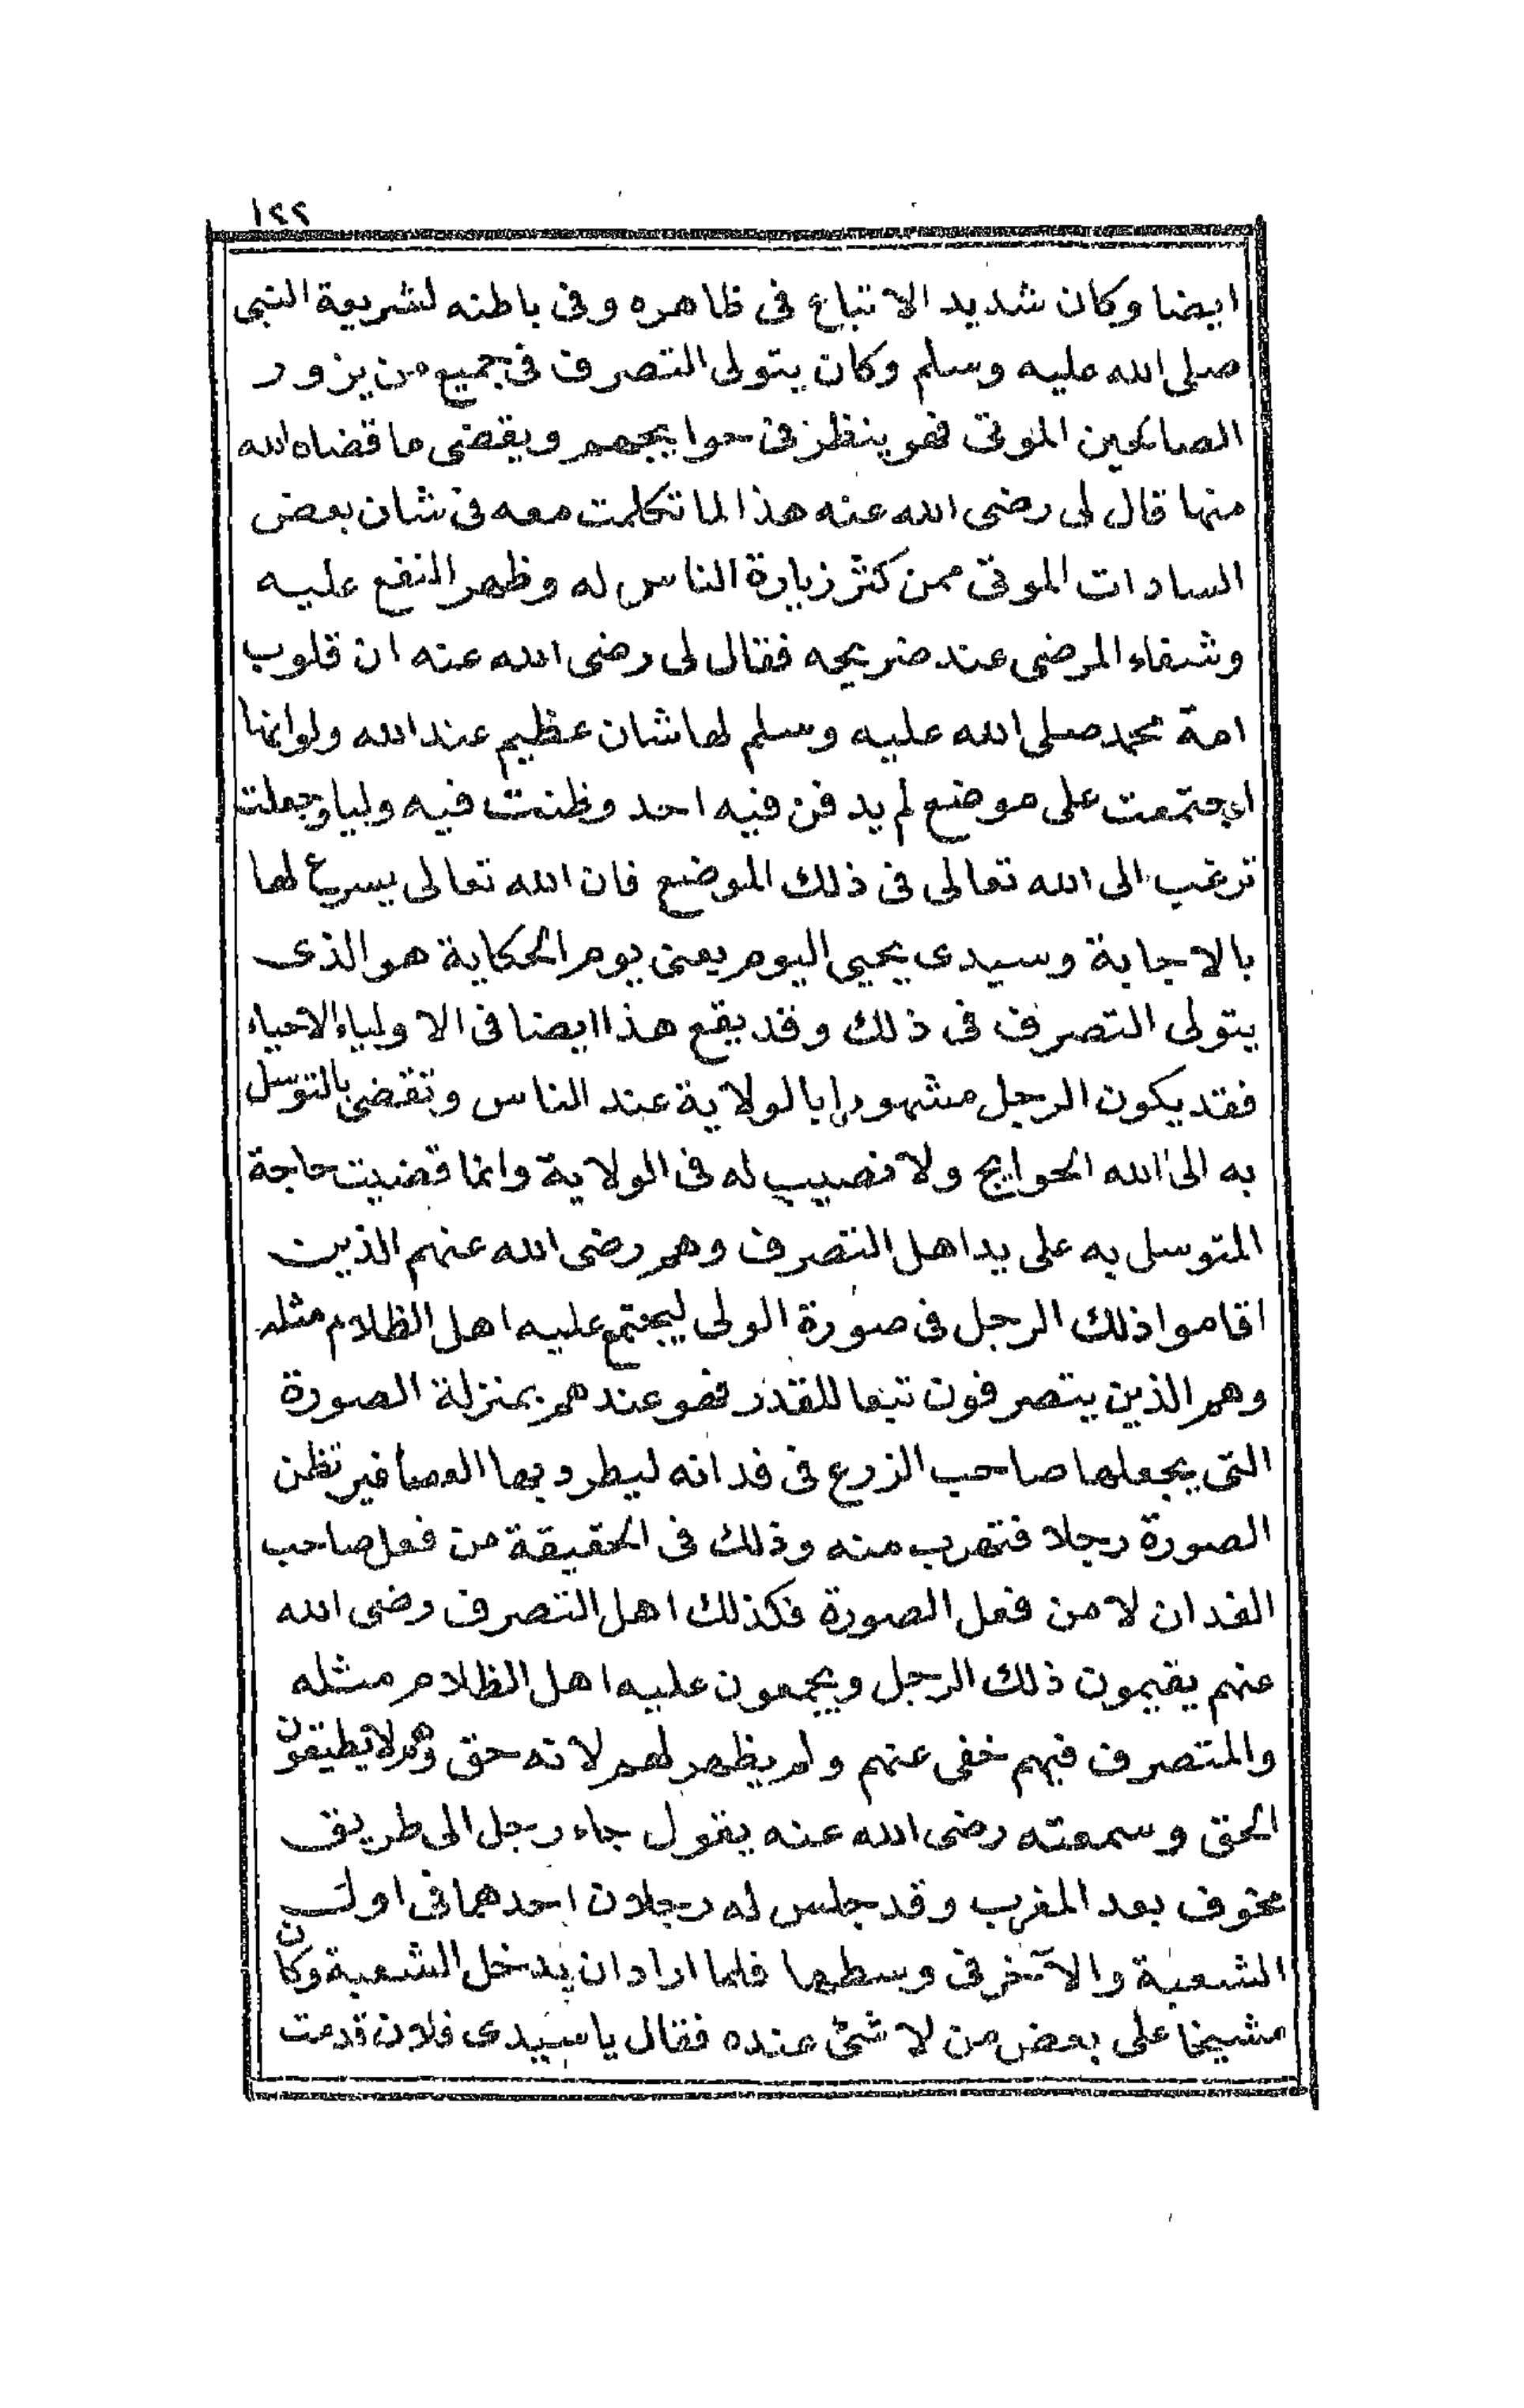 ١٢٢
ايضا وكان شديد الاتباع فى ظاهره وفى باطنه لشريعة النبى
صلى الله عليه وسلم وكان يتولى التصرف فى جميع من يزور
الصالحين الموتى فهو ينظر فى حوايجهم ويقضى ما قضاه الله
منها قال لى رضى الله عنه هذا لما تكلمت معه فى شان بعض
السادات الموتى ممن كثر زيارة الناس له وظهر النفع عليه
وشفاء المرضى عند ضريحه فقال لى رضى الله عنه ان قلوب
امة محمد صلى الله عليه وسلم لها شان عظيم عند الله ولو انها
اجتمعت على موضع لم يدفن فيه احد وظنت فيه وليا وجعلت
ترغب الى الله تعالى فى ذلك الموضع فان الله تعالى يسرع لها
بالاجابة وسيدى يحيى اليوم يعنى يوم الحكاية هو الذى
يتولى التصرف فى ذلك وقد يقع هذا ايضا فى الاولياء الاحياء
فقد يكون الرجل مشهورا بالولاية عند الناس وتقضى بالتوسل
به الى الله الحوايج ولا نصيب له فى الولاية وانما قضيت حاجة
المتوسل به على يد اهل التصرف وهم رضى الله عنهم الذين
اقاموا ذلك الرجل فى صورة الولى ليجتمع عليه اهل الظلام مثله
وهم الذين يتصرفون تبعا للقدر فهو عندهم بمنزلة الصورة
التى يجعلها صاحب الزرع فى فدانه ليطرد بها العصافير تظن
الصورة رجلا فتهرب منه وذلك فى الحقيقة من فعل صاحب
الفدان لا من فعل الصورة فكذلك اهل التصرف رضى الله
عنهم يقيمون ذلك الرجل ويجمعون عليه اهل الظلام مثله
والمتصرف فيهم خفى عنهم ولم يظهر لهم لانه حق وهم لا يطيقون
الحق وسمعته رضى الله عنه يقول جاء رجل الى طريق
مخوف بعد المغرب وقد جلس له رجلان احدهما فى اول
الشعبة والآخر فى وسطها فلما اراد ان يدخل الشعبة وكان
مشيخا على بعض من لا شئ عنده فقال يا سيدى فلان قدمت